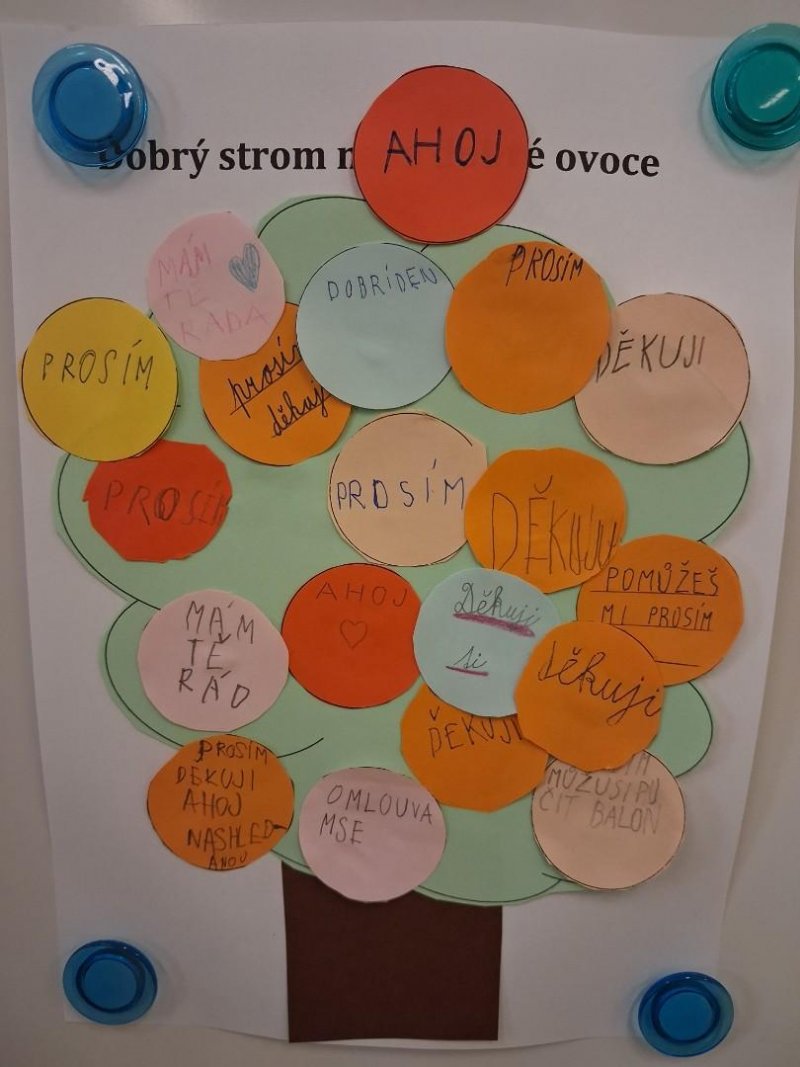 Dobrý strom é ovoce
AHOJ
MÁM
TE
RÁDA
DOBRÍDEN
PROSÍM
PROSÍM
DĚKUJI
děkuji
PROSÍM
PROSÍM
DĚKUJU
POMŮŽEŠ
MI PROSÍM
MÁM
TĚ
RÁD
AHOJ
Děkuji
ti
děkuji
DĚKUJI
PROSÍM
DĚKUJI
AHOJ
NASHLED
ANOU
OMLOUVA
MSE
MŮŽUSI PU
ČIT BALON